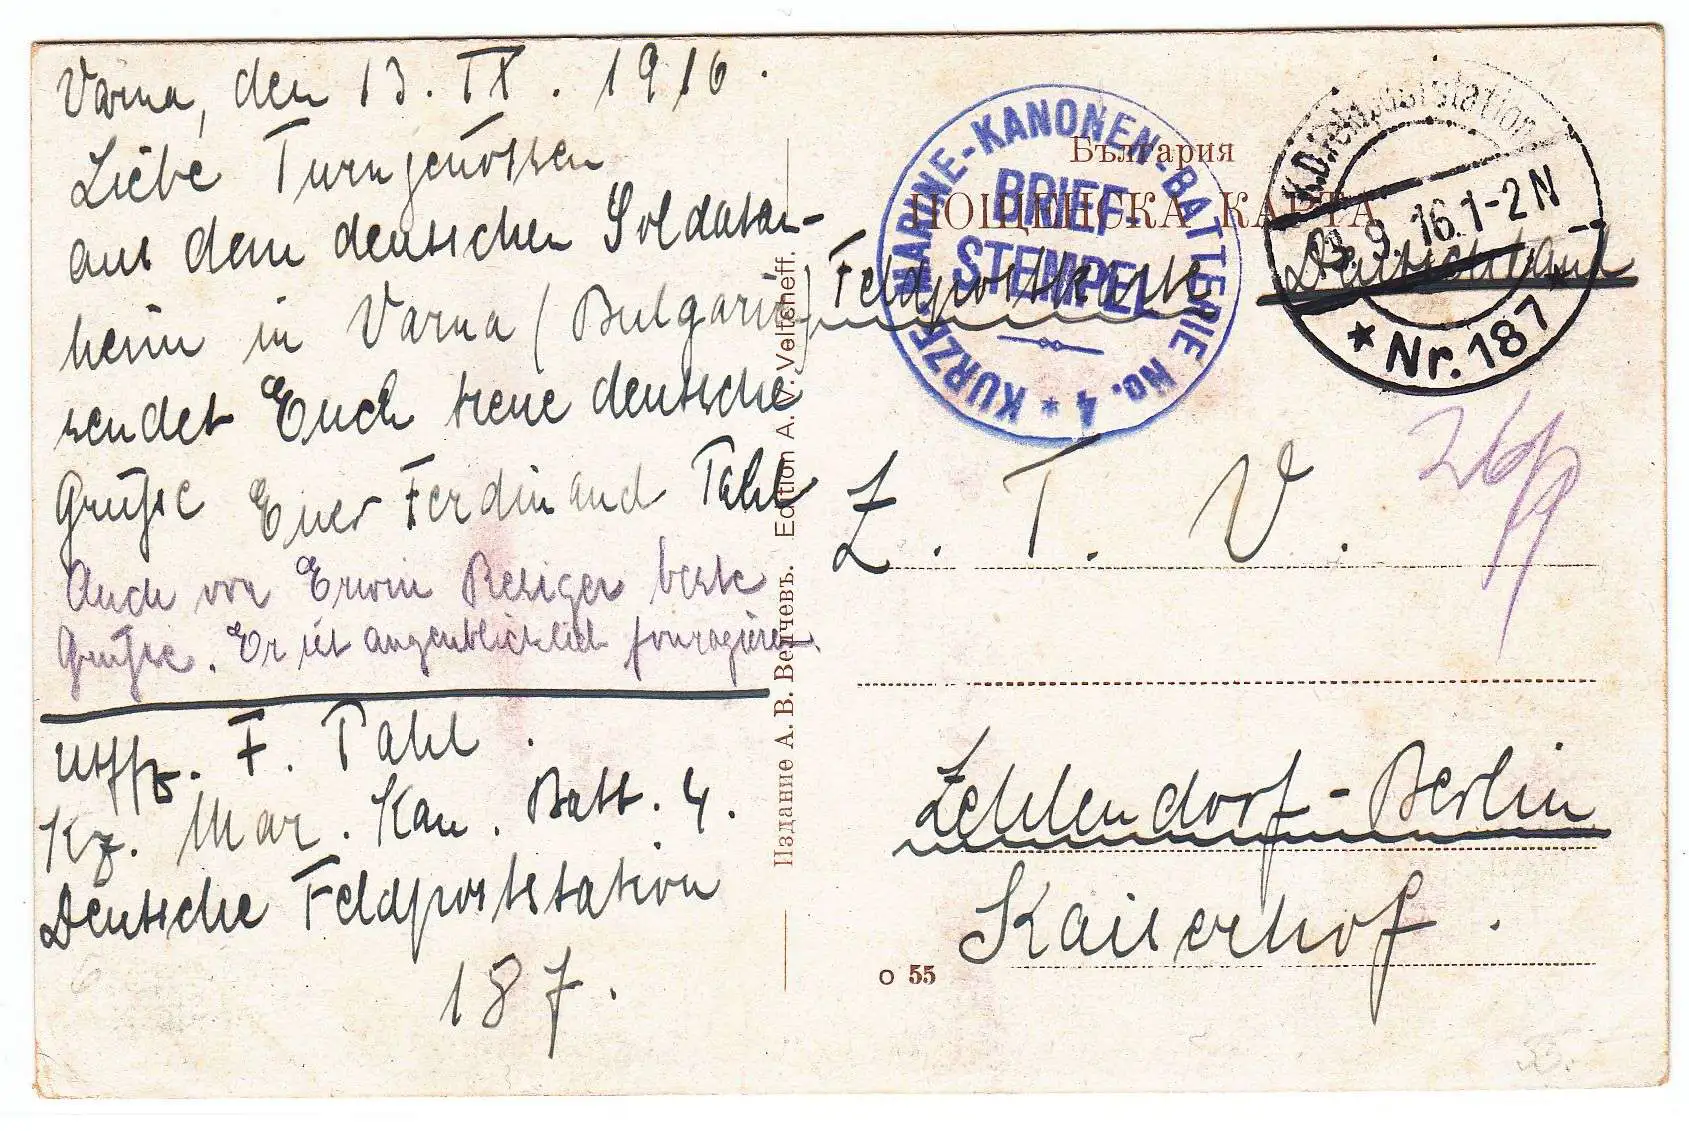 Varna, den 13. IX. 1916.
Liebe Turngenossen
aus dem deutschen Soldaten-
heim in Varna (Bulgarien)
sendet Euch treue deutsche
Grüße Euer Ferdinand Pahl
Auch von Erwin beste
Grüße. Er ist augenblicklich fouragieren.
Utffz. F. Pahl.
Kz. Mar. Kan. Batt. 4.
Deutsche Feldpoststation
187.
Издание А. В. Велчевъ. Edition A. V. Veltsheff.
България
ПОЩЕНСКА КАРТА
KURZE-MARINE-KANONEN-BATTERIE No. 4 *
BRIEF-
STEMPEL
K.D.Feldpoststation
13.9.16.1-2N
* Nr.187 *
Feldpostkarte
Deutschland
Z. T. V.
Zehlendorf-Berlin
Kaiserhof.
o 55